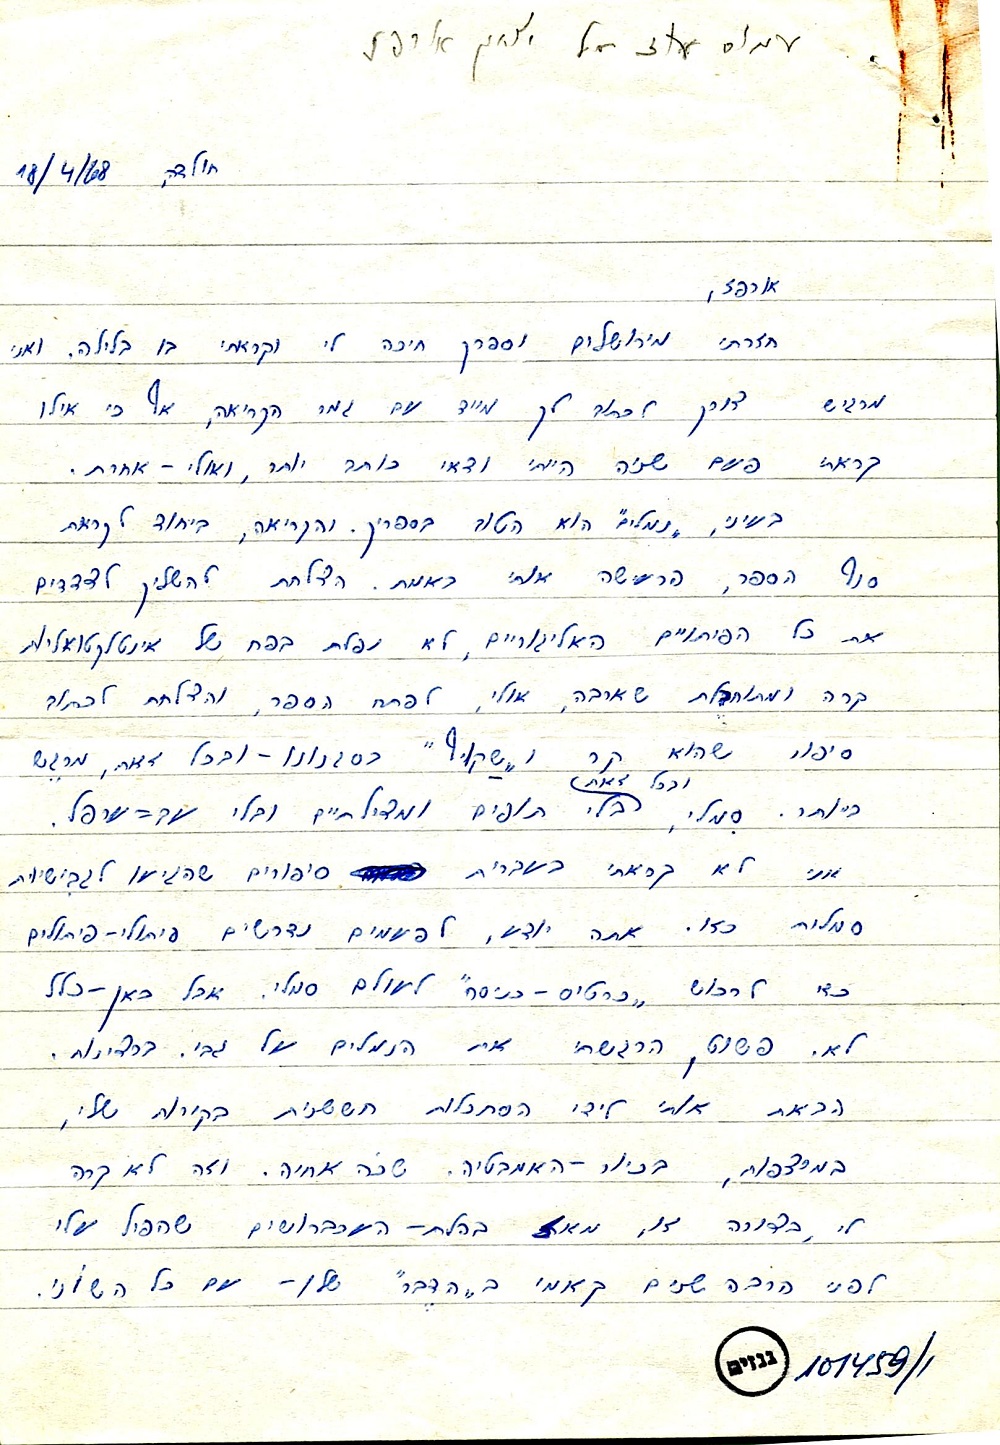 עמוס עוז על יצחק אורפז
חולדה 18/4/68
אורפז,
חזרתי מירושלים וספרך חיכה לי וקראתי בו בלילה. ואני
מרגיש צורך לכתוב לך מייד עם גמר הקריאה, אף כי אילו
קראתי פעם שניה הייתי ודאי כותב יותר, ואולי - אחרת.
בעיני, „נמלים" הוא הטוב בספריך. והקריאה, ביחוד לקראת
סוף הספר, הרעישה אותי באמת. הצלחת להשליך לצדדים
את כל הפיתויים האליגוריים, לא נפלת בפח של אינטלקטואליות
קרה ומתוחכמת שארבה, אולי, לפתח הספר, והצלחת לכתוב
סיפור שהוא קר ו„שקוף" בסגנונו - ובכל זאת, מרגש
ביותר. סמלי, ובכל זאת בלי תופים ומצילתיים ובלי עב=ערפל.
אני לא קראתי בעברית סיפורים שהגיעו לגבישיות
סמלית כזו. אתה יודע, לפעמים נדרשים פיתולי-פיתולים
כדי לרכוש „כרטיס-כניסה" לעולם סמלי. אבל כאן - כלל
לא. פשוט, הרגשתי את הנמלים על גבי. ברצינות.
הבאת אותי לידי הסתכלות חששנית בקירות שלי,
במרצפות, בכיור-האמבטיה. שכה אחיה. וזה לא קרה
לי, בצורה זו, מאז בהלת-העכברושים שהפיל עלי
לפני הרבה שנים קאמי ב„הדבר" שלו - עם כל השוני.
גנזים 101459/1